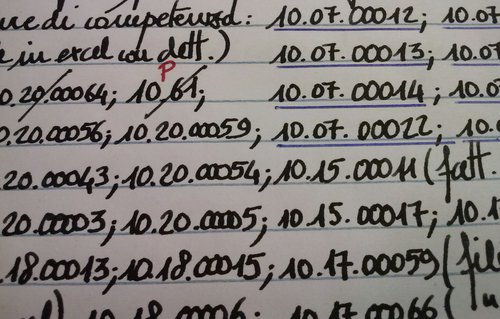 di competenza: 10.07.00012; 10.07
in excel con dott.)    10.07.00013; 10.07
P
0.20.00064; 10.61;    10.07.00014; 10.0
0.20.00056; 10.20.00059; 10.07.00022; 10.
20.00043; 10.20.00054; 10.15.00011 (fatt.
20.00003; 10.20.00005; 10.15.00017; 10.1
.18.00013; 10.18.00015; 10.17.00059 (file
10.18.0006; 10.17.00066 (